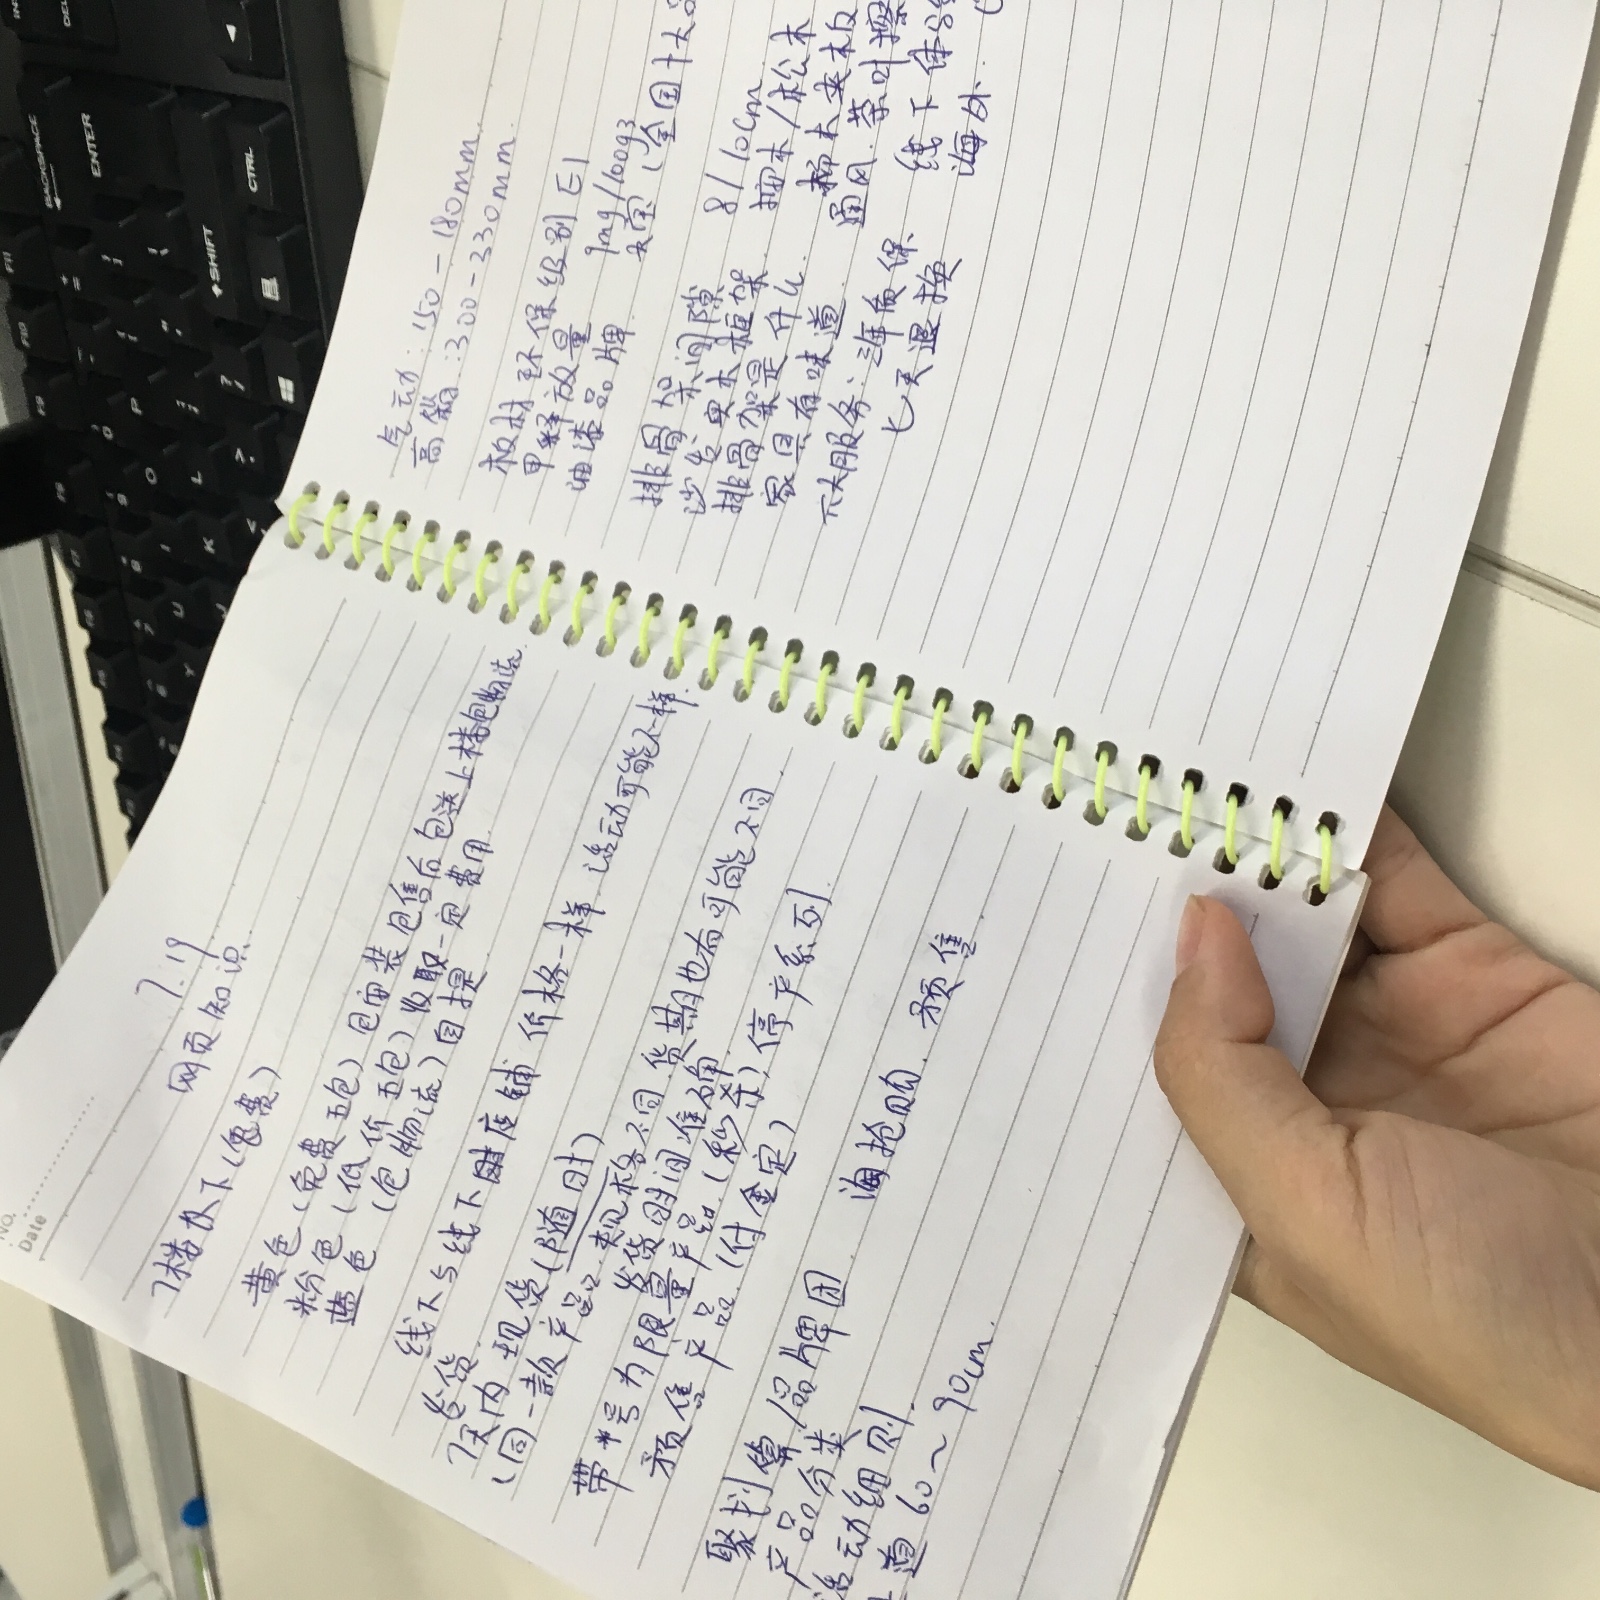 NO.
Date
7.19
网页知识.
7楼及下(免费)
黄色(免费五包)包安装包售后包送上楼包物流.
粉色(低价五包)收取一定费用.
蓝色(包物流)自提.
线下与线下店铺价格一样.活动可能不一样.
发货.
7天内现货(随时)
(同一款产品.规格不同.货期也有可能不同.
发货时间准确.
带*号为限量产品.(秒杀)停产系列.
预售产品.(付金定)
聚划算/品牌团. 淘抢购. 预售.
产品分类
活动细则.
道60~90cm.
气动:150-180mm.
高箱:300-330mm.
板材环保级别E1
甲释放量 9mg/100g3
油漆品牌. 大宝(全国十大品
排骨架间隙 8/10cm.
沙发实木框架. 木/松木
排骨架是什么. 杨木夹板
家具有味道. 通风.茶叶擦
六大服务:三年质保 线下体
七天退换 海外.
F7
F8
F9
F10
F11
BACKSPACE
ENTER
SHIFT
CTRL
O
P
U
I
K
L